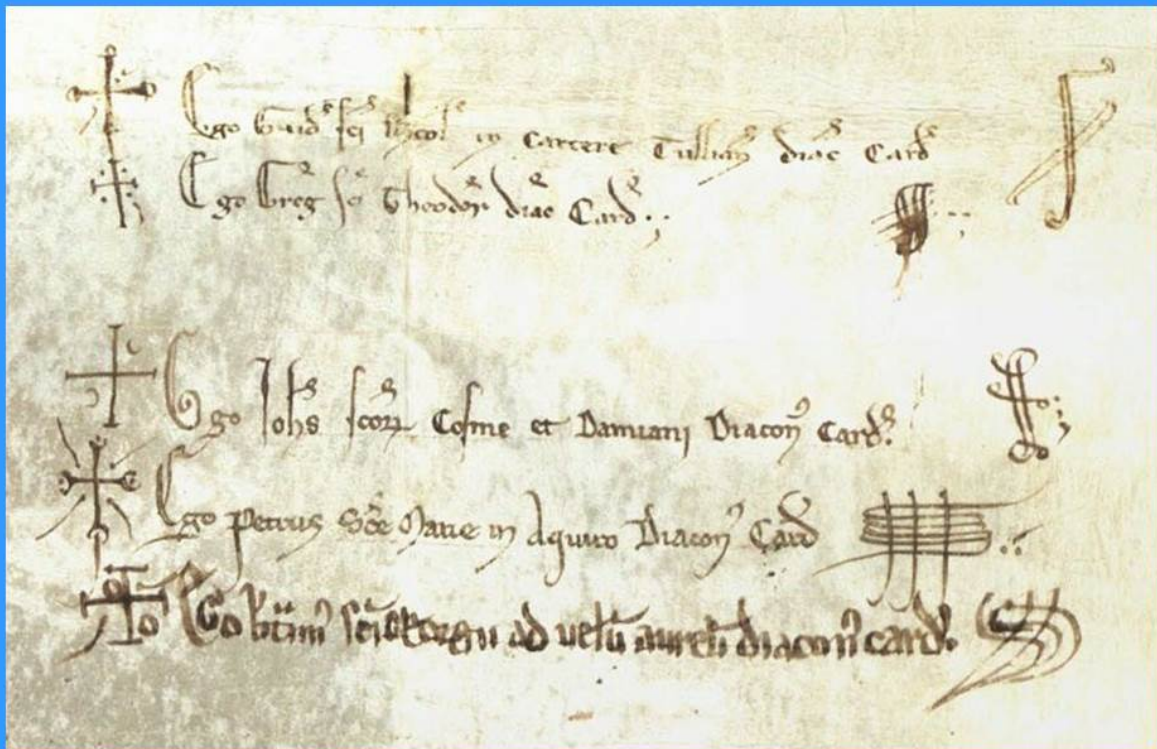 Ego Guid' sci Nycol' in carcere Tullian' diac Card'
Ego Greg' sci Theodor' diac Card'
Ego Johs scor' Cosme et Damiani Diacon' Card'
Ego Petrus sce Marie in Aquiro Diacon' Card'
Ego sci Georgii ad uelu aureu diacon' card'